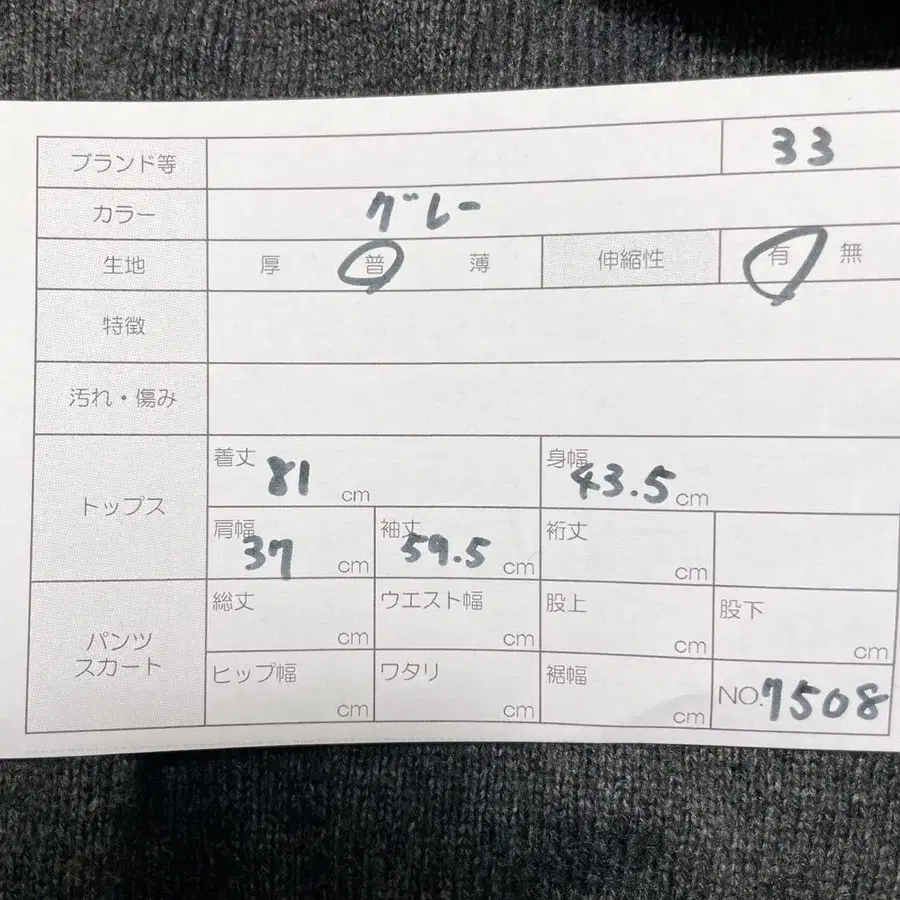 ブランド等 33
カラー グレー
生地 厚 普 薄 伸縮性 有 無
特徴
汚れ・傷み
トップス
着丈 81 cm 身幅 43.5 cm
肩幅 37 cm 袖丈 59.5 cm 裄丈 cm
パンツ
スカート
総丈 cm ウエスト幅 cm 股上 cm 股下 cm
ヒップ幅 cm ワタリ cm 裾幅 cm NO.7508